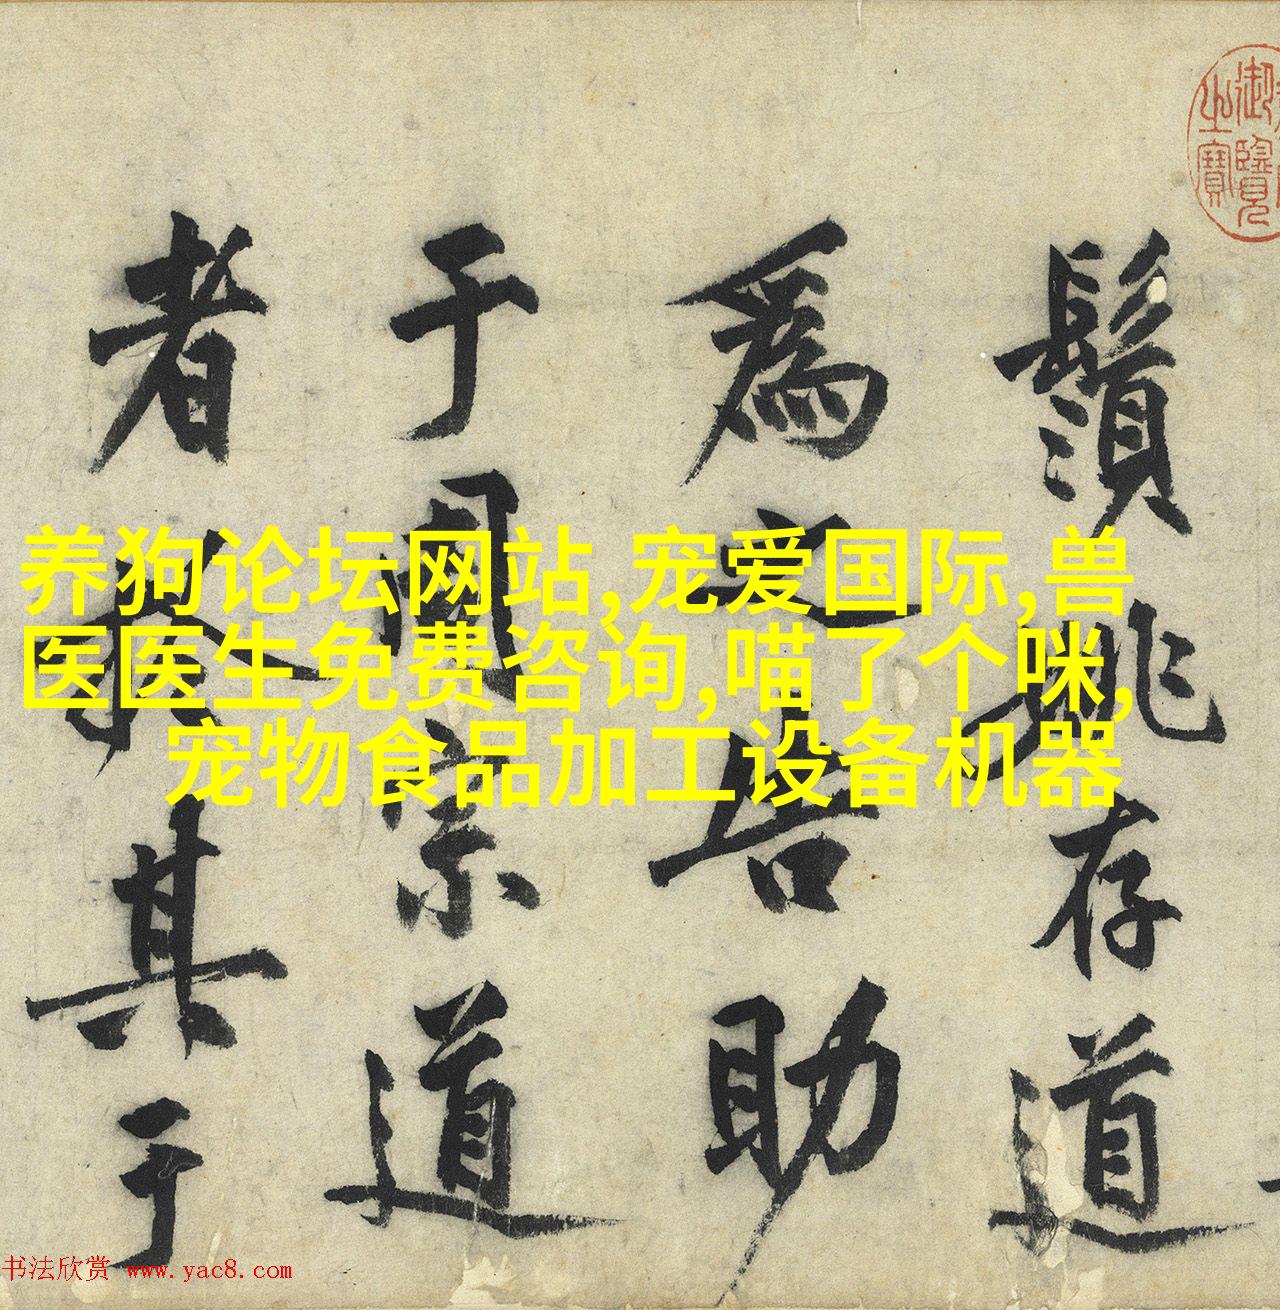 鬚姚存道
為之告助
于周宗道
者其于
御覽
之寶
养狗论坛网站,宠爱国际,兽
医医生免费咨询,喵了个咪,
宠物食品加工设备机器
书法欣赏 www.yac8.com